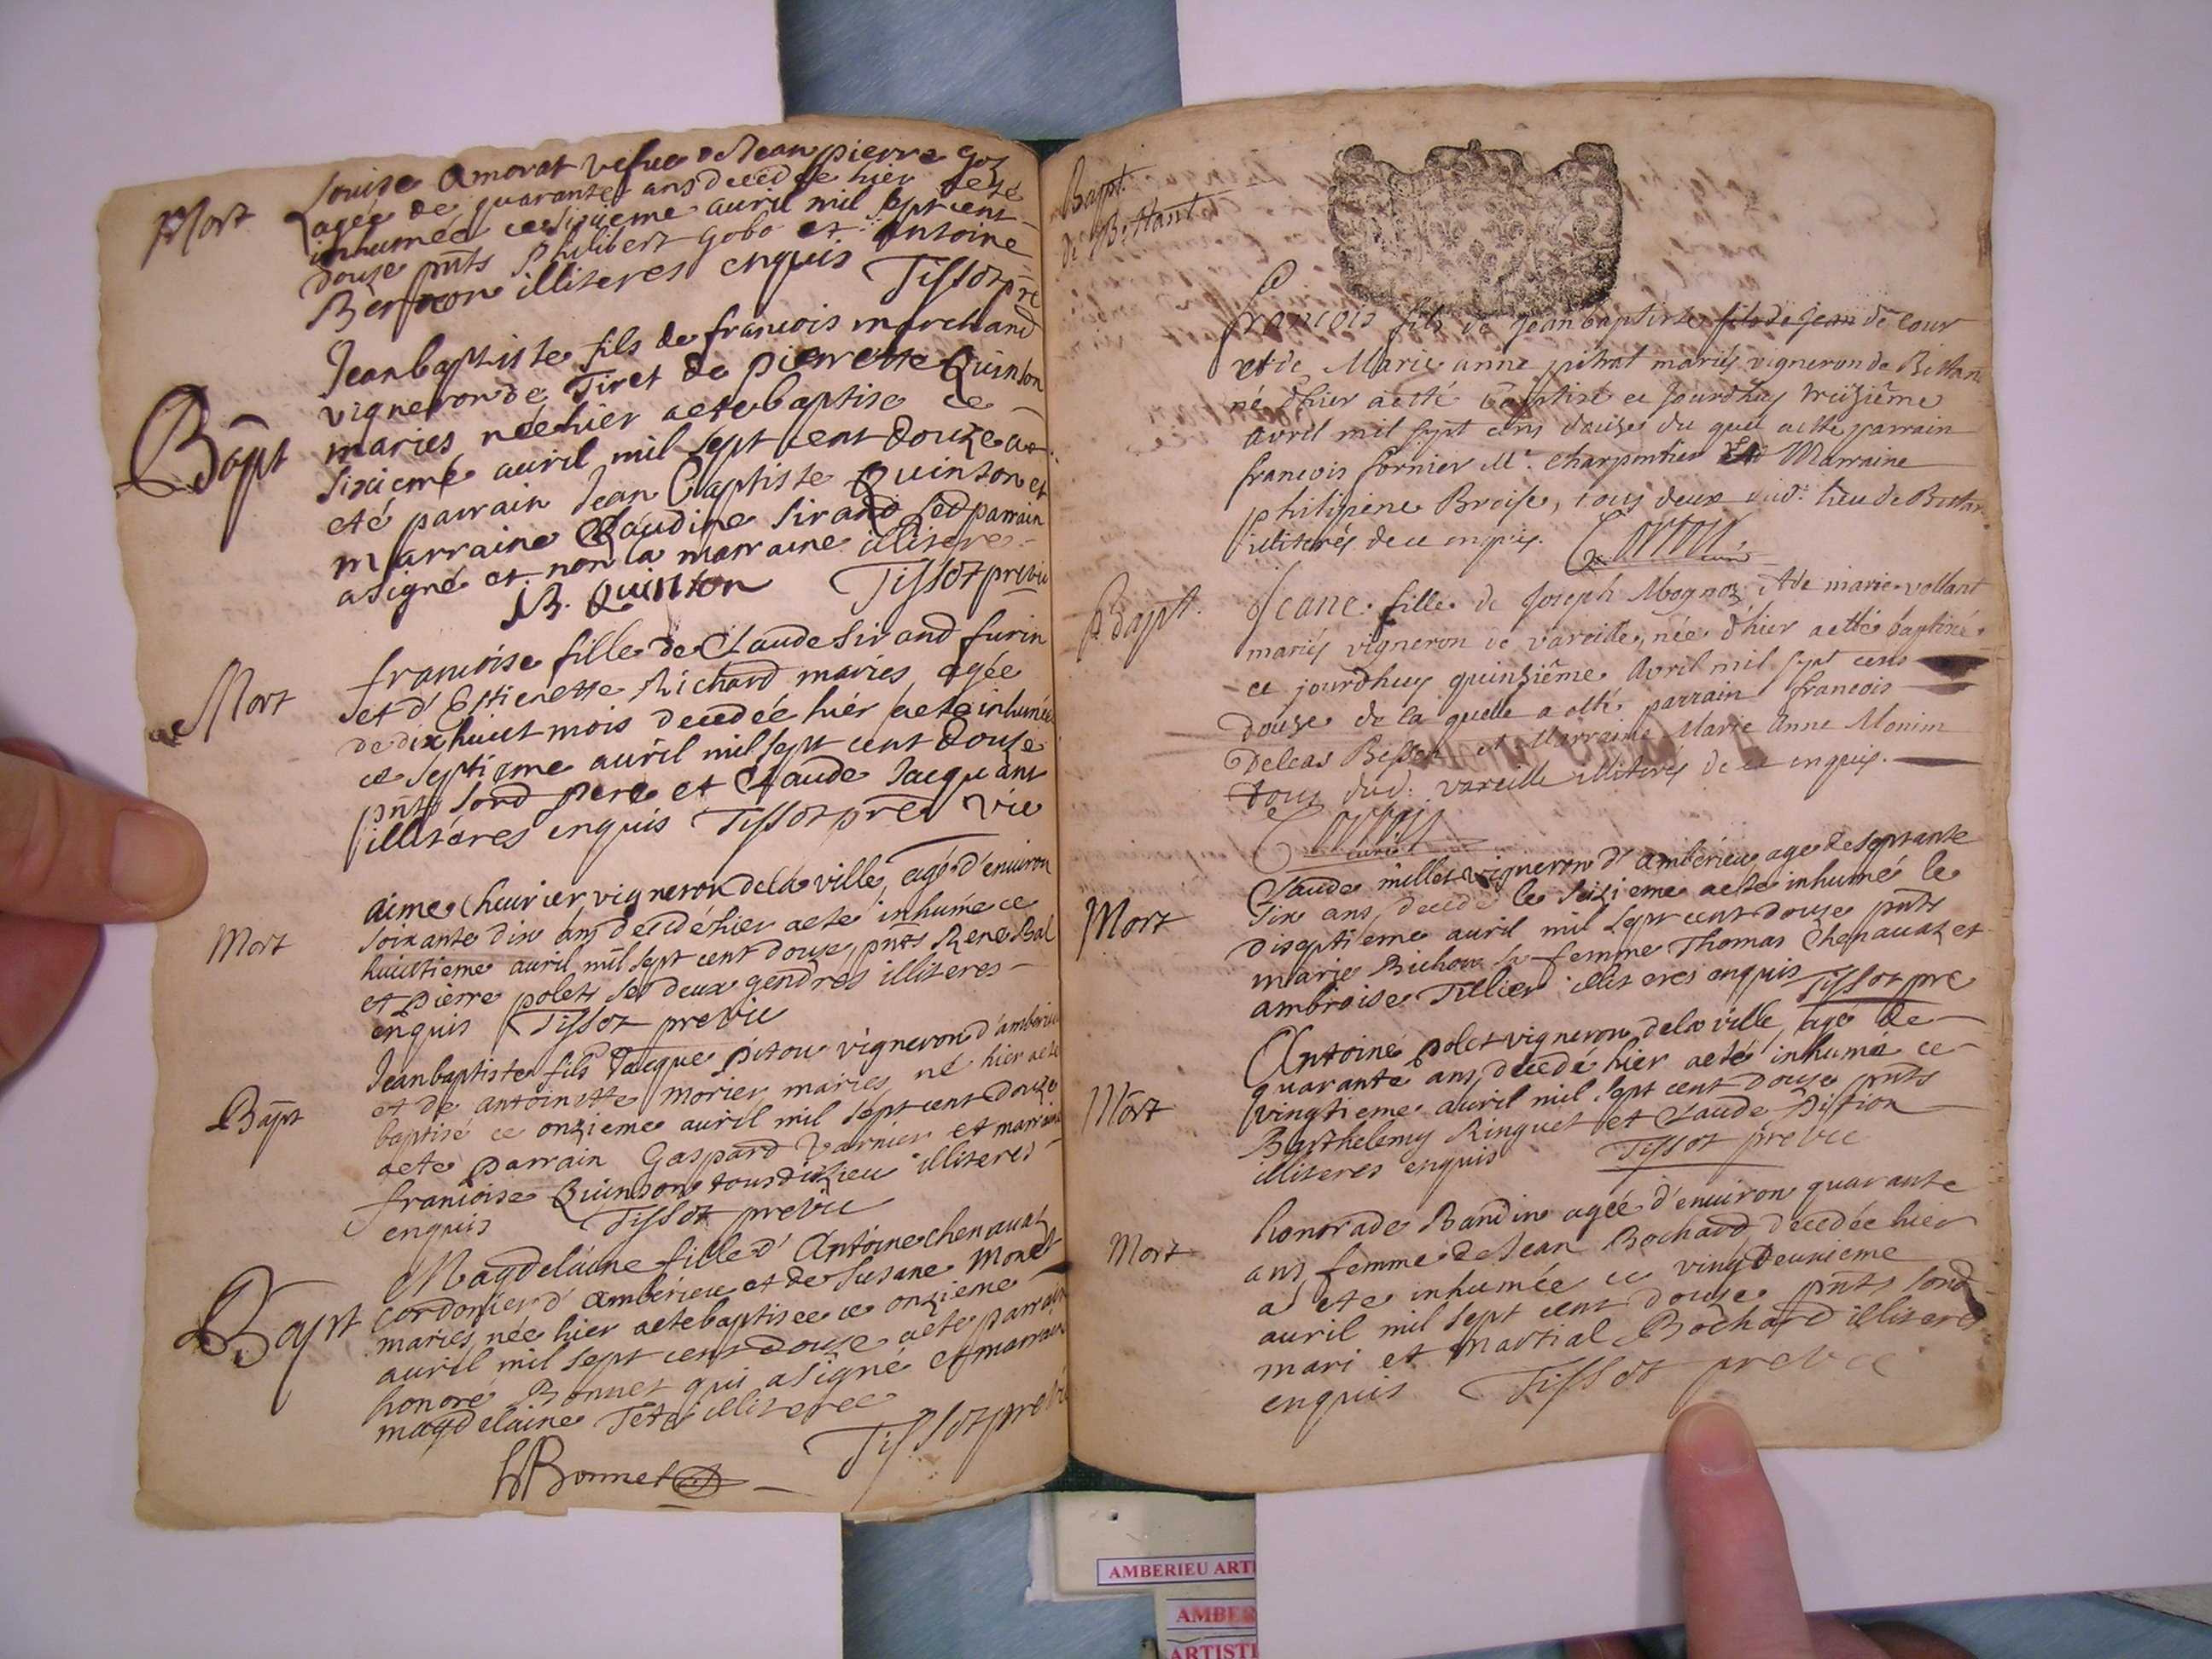 Mort
Louise Amorat vefue de Jean pierre Goz
agée de quarante ans decedee hier aeté
inhumée ce sixieme auril mil sept cent
douze pnts philibert Gobo et Antoine
illiteres enquis Tissot pre
Bapt
Jean baptiste fils de francois marchand
vigneron de Tiret de pierrette Quinson
maries née hier aete baptise ce
sixieme auril mil sept cent douze a
eté parrain Jean Baptiste Quinson et
marraine Claudine Sirand led parrain
a signé et non la marraine illitere
JB. Quinson Tissot pre vic
Mort
francoise fille de Claude Sirand furin
et d'Estienette Richard maries agée
de dix huict mois decedée hier aeté inhumée
ce septieme auril mil sept cent douze
pnts sond pere et Claude Jacquant
illiteres enquis Tissot pre vic
Mort
aime Cheurier vigneron dela ville, agé d'enuiron
soixante dix ans decedé hier aete inhumé ce
huictieme auril mil sept cent douze, pnts René Bal
et pierre polet ses deux gendres illiteres
enquis Tissot pre vic
Bapt
Jean baptiste fils Jacque pitou vigneron d'amberieu
et de antoinette Morier maries, né hier aete
baptisé ce onzieme auril mil sept cent douze
aete parrain Gaspard Varnier et marraine
francoise Quinson tous du lieu illiteres
enquis Tissot pre vic
Bapt
Magdelaine fille d'Antoine chenauaz
cordonier d'amberieu et de Susane Monet
maries, née hier aete baptisee ce onzieme
auril mil sept cent douze aete parrain
honoré Bonnet qui a signé et marraine
magdelaine illiteree
Tissot pre vic
hBonnet
Bapt.
de Bettant
francois fils de Jean baptiste fils de Jean de cour
et de Marie anne pitrat mariés vigneron de Bettan
né d'hier aetté baptisé ce jourdhuy treizième
avril mil sept cens douzes du quel aetté parrain
francois fornier Mr. charpentier Et Marraine
philipine Broise, tous deux dud: lieu de Bettan
illiterés de ce enquis.
curé
Bapt.
Jeane fille de Joseph Mognoz et de marie vollant
mariés vigneron de vareille, née d'hier aetté baptisé
ce jourdhuy quinzième Avril mil sept cens
douze de la quelle a etté parrain francois
Deleas et Marraine Marie Anne Monim
tous dud: vareille illiterés de ce enquis.
curé
Mort
Claude millet vigneron d'amberieu age de septante
six ans, decede le seizieme aete inhumé le
diseptieme auril mil sept cent douze pnts
marie Bichon sa femme Thomas Chenauaz et
ambroise Tillier illiteres enquis Tissot pre
Mort
Antoine polet vigneron dela ville, agé de
quarante ans, decedé hier aeté inhume ce
vingtieme auril mil sept cent douze pnts
Barthelemy Ringuet et Claude Pistion
illiteres enquis Tissot pre vic
Mort
honorade Bandin agée d'enuiron quarante
ans, femme de Jean Bochard decedée hier
a ete inhumée ce vingdeuxieme
auril mil sept cent douze pnts sond
mari et martial Bochard illiteres
enquis Tissot pre vic
AMBERIEU ARTI
AMBE
ARTISTI